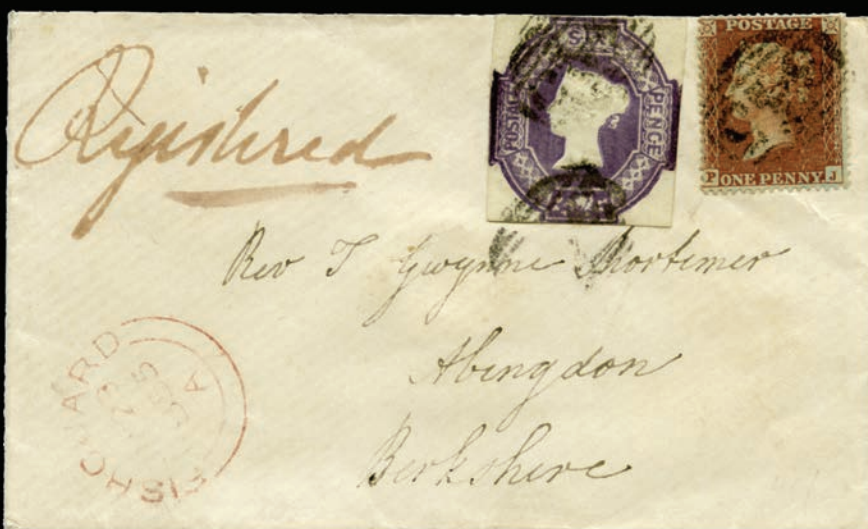 Registered
POSTAGE
SIX
PENCE
POSTAGE
P ONE PENNY J
Rev T Gwynne Mortimer
Abingdon
Berkshire
FISHGUARD
A